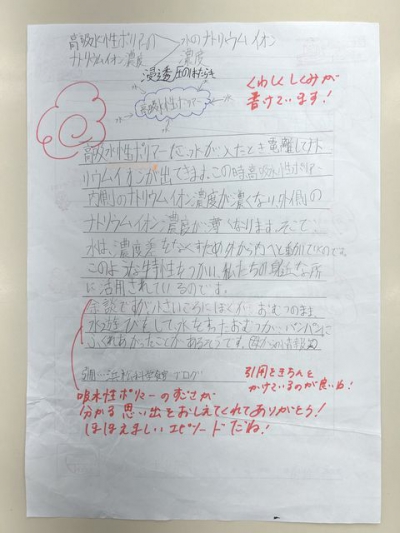 高吸水性ポリマーの 水のナトリウムイオン
ナトリウムイオン濃度 濃度
浸透圧のはたらき
高吸水性ポリマー
くわしくしくみが
書けています!
高吸水性ポリマーに水が入ったとき電離してナト
リウムイオンが出てきます。この時高吸水性ポリマー
内側のナトリウムイオン濃度が濃くなり、外側の
ナトリウムイオン濃度が薄くなります。そこで
水は、濃度差をなくすため外から内へと動いていくのです。
このような特性をつかい、私たちの身近な所
に活用されているのです。
余談ですが、小さいころにぼくが、おむつのまま
水遊びをして、水をすったおむつが、パンパンに
ふくれあがったことがあるそうです。
引用をきちんと
かけているのが良いね!
吸水性ポリマーのすごさが
分かる思い出をおしえてくれてありがとう!
ほほえましいエピソードだね!